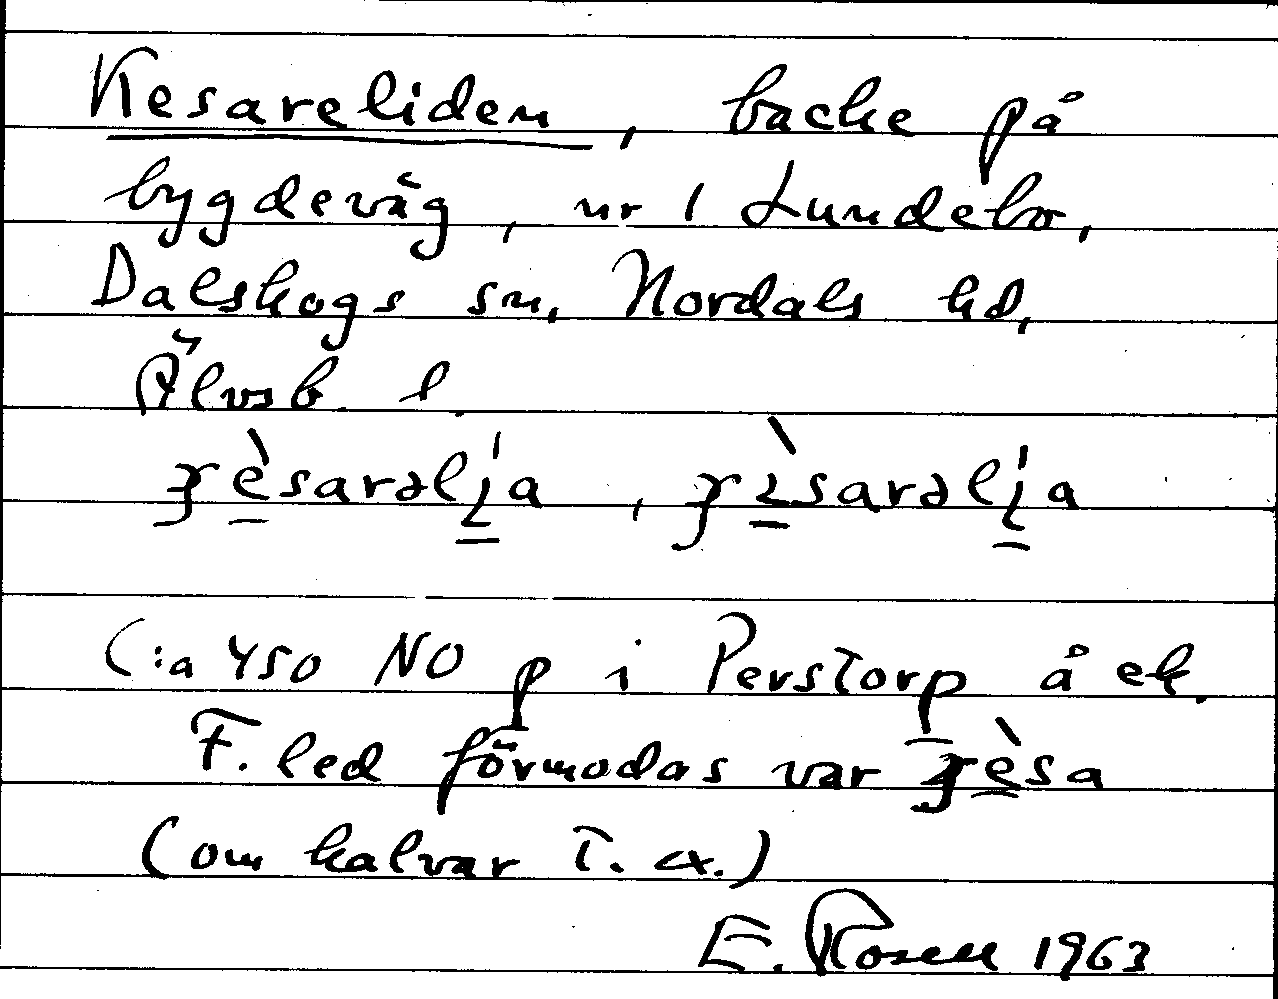 Kesareliden, backe på
bygdeväg, nr 1 Lundebo,
Dalskogs sn, Nordals hd,
Älvsb. l.
C:a 450 NO p i Perstorp å ek.
F. led förmodas var
(om kalvar t. ex.)
E. Rosell 1963